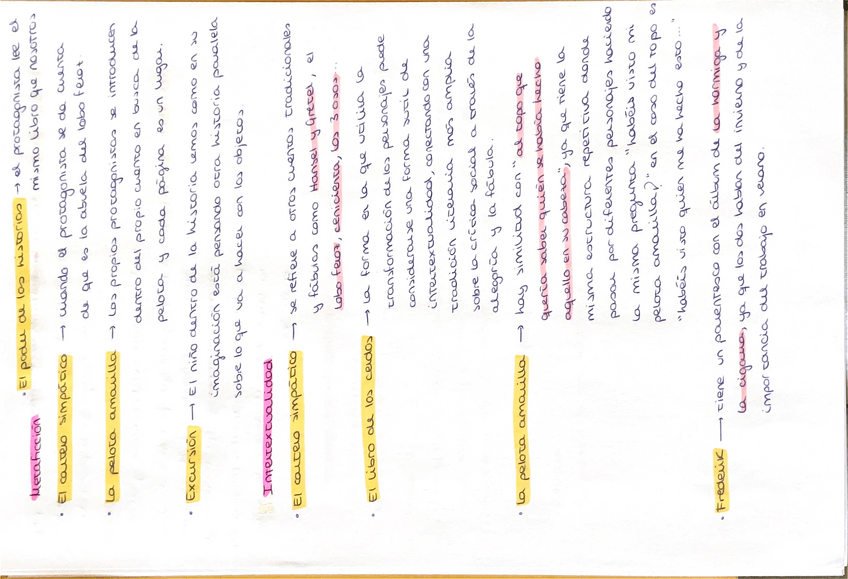 Metaficción
· El poder de las historias → el protagonista lee el
mismo libro que nosotros
· El cartero simpático → cuando el protagonista se da cuenta
de que es la abuela del lobo feroz.
· La pelota amarilla → Los propios protagonistas se introducen
dentro del propio cuento en busca de la
pelota y cada página es un lugar.
· Excursión → El niño dentro de la historia vemos como en su
imaginación está pensando otra historia paralela
sobre lo que va a hacer con los objetos
Intertextualidad
· El cartero simpático → se refiere a otros cuentos tradicionales
y fábulas como Hansel y Gretel, el
lobo feroz, cenicienta, los 3 osos...
· El libro de los cerdos → La forma en la que utiliza la
transformación de los personajes puede
considerarse una forma sutil de
intertextualidad, conectando con una
tradición literaria más amplia
sobre la crítica social a través de la
alegoría y la fábula.
· La pelota amarilla → hay similitud con "al topo que
quería saber quién se había hecho
aquello en su cabeza", ya que tiene la
misma estructura repetitiva donde
pasar por diferentes personajes haciendo
la misma pregunta "habéis visto mi
pelota amarilla?" en el caso del topo es
"habéis visto quien me ha hecho esto..."
· Frederik → tiene un parentesco con el álbum de la hormiga y
la cigarra, ya que los dos hablan del invierno y de la
importancia del trabajo en verano.